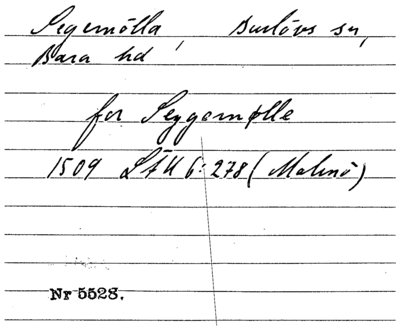 Segemölla, Burlövs sn,
Bara hd
for Seggemølle
1509 LÄU 6:278 (Malmö)
Nr 5528.